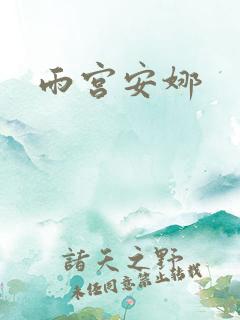 雨宫安娜
諸天之野
未任同意禁止轉載